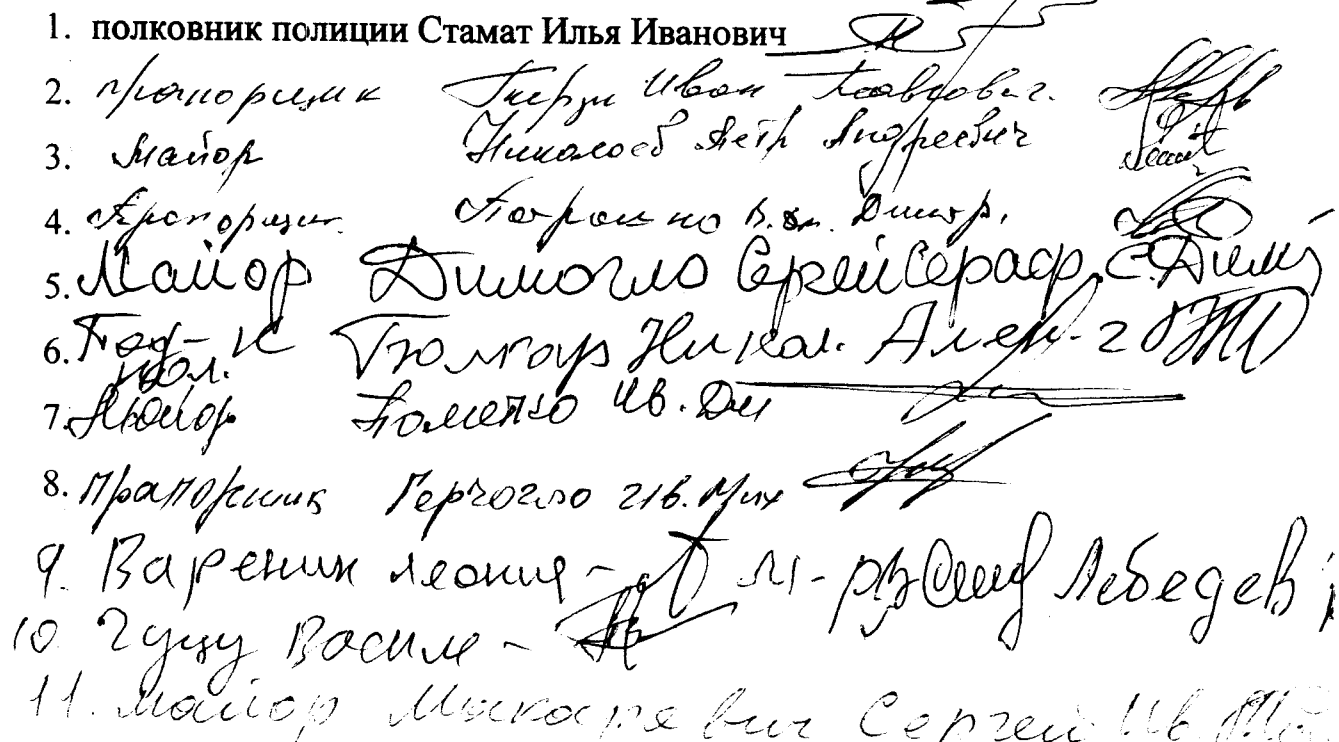 1. полковник полиции Стамат Илья Иванович
2. прапорщик Иван Павлович.
3. Майор Николаев Петр Андреевич
4. Прапорщик Дмитр.
5. Майор Димогло Сергей Сераф. С. Дим
6. Под-к пол. Никол. Алек-г
7. Майор Ив. Дм
8. Прапорщик Герчогло Ив. Мих
9. Вареник Леонид - М-р Лебедев
10. Гуцу Василе -
11. майор Макаревич Сергей Ив.